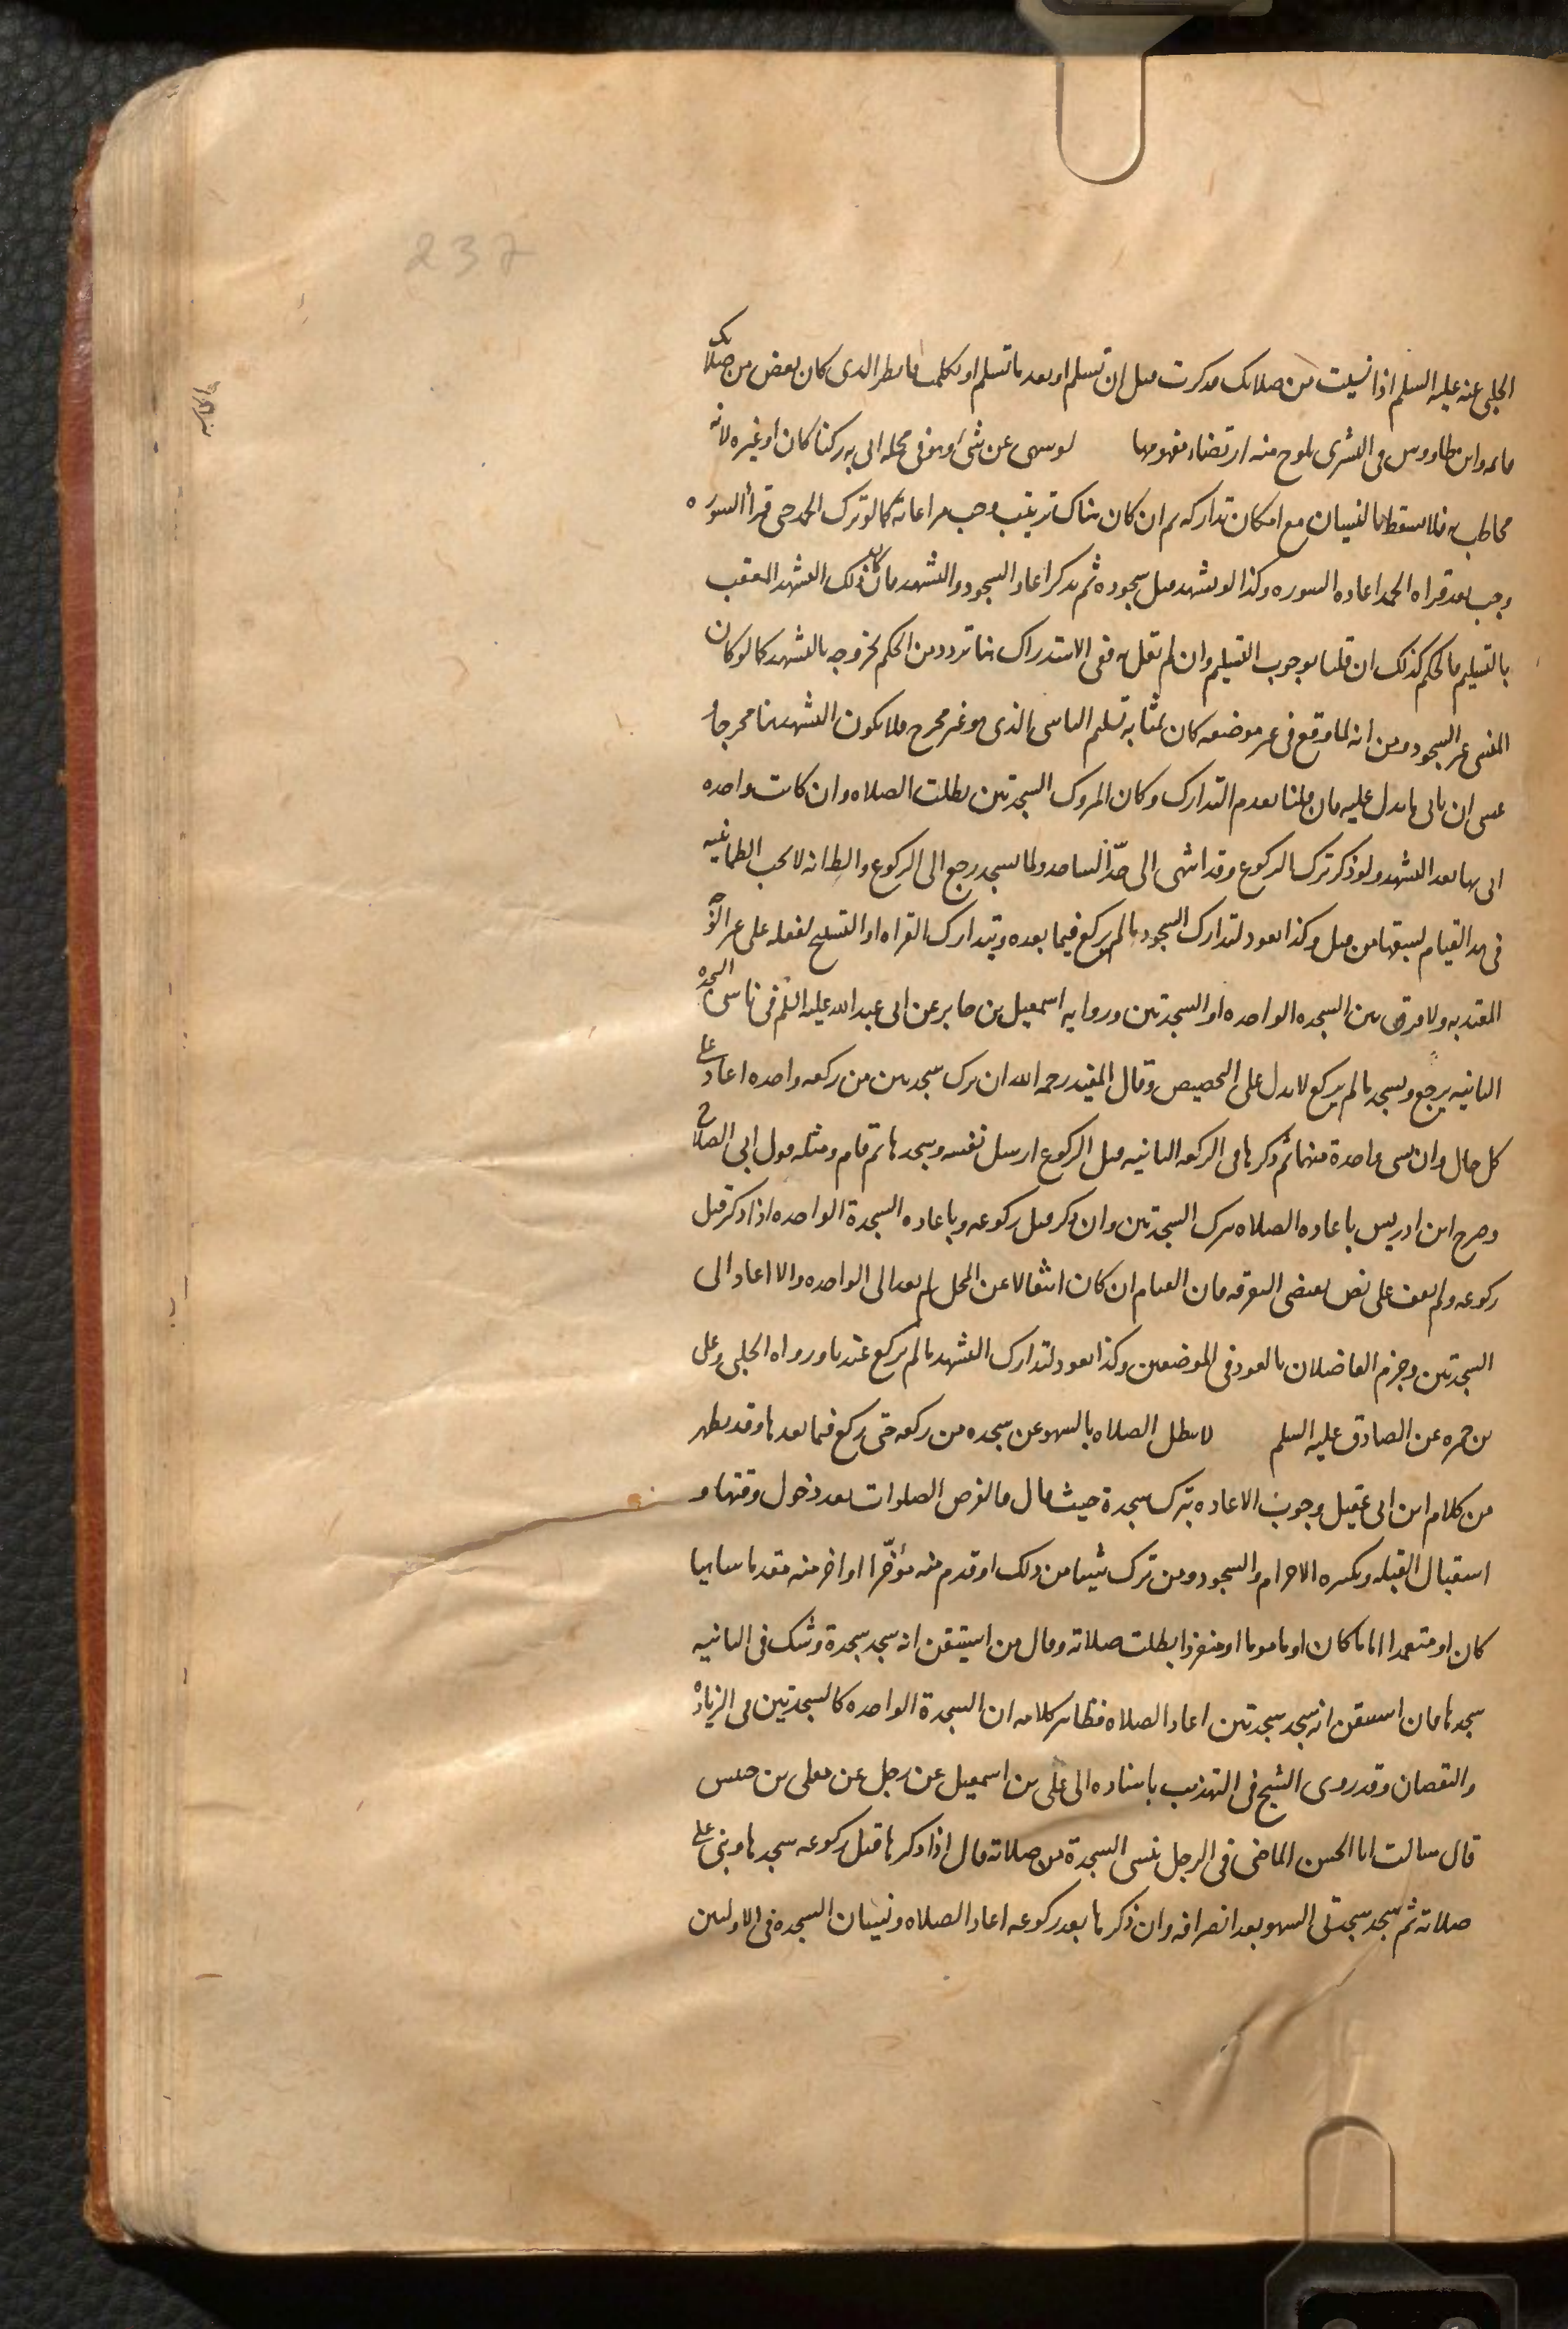 237
الحلبي عنه عليه السلم اذا نسيت من صلاتك فذكرت قبل ان تسلم او بعد ما تسلم او تكلمت فانظر الذي كان نقص من صلاتك
فاتمه وابن طاووس في البشرى يلوح منه ارتضاء مفهومها لو سهى عن شئ وهو في محله اتى به ركنا كان او غيره لانه
مخاطب به فلا يسقط بالنسيان مع امكان تداركه ثم ان كان هناك ترتيب وجب مراعاته كما لو ترك الحمد حتى قرأ السوره
وجب بعد قراه الحمد اعاده السوره وكذا لو تشهد قبل سجوده ثم تذكر اعاد السجود والتشهد فان كان ذلك التشهد المعقب
بالتسليم فالحكم كذلك ان قلنا بوجوب التسليم وان لم نقل به ففي الاستدراك هنا تردد من الحكم بخروجه بالتشهد كما لو كان
المنسي غير السجود ومن انه لما وقع في غير موضعه كان بمثابه تسليم الناسي الذي هو غير مخرج فلا يكون التشهد هنا مخرجا و
عسى ان ياتى ما يدل عليه فان قلنا بعدم التدارك وكان المتروك السجدتين بطلت الصلاه وان كانت واحده
اتى بها بعد التشهد ولو ذكر ترك الركوع وقد انتهى الى حدّ الساجد ولما يسجد رجع الى الركوع والظ انه لا تجب الطمانينه
في هذا القيام لسبقها من قبل وكذا يعود لتدارك السجود ما لم يركع فيما بعده ويتدارك القراه او التسبيح لفعله على غير الوجه
المعتد به ولا فرق بين السجده الواحده او السجدتين وروايه اسمعيل بن جابر عن ابي عبد الله عليه السلم في ناسي السجده
الثانيه يرجع ويسجد ما لم يركع لا يدل على التخصيص وقال المفيد رحمه الله ان ترك سجدتين من ركعه واحده اعاد على
كل حال وان نسى واحدة منهما ثم ذكرها في الركعه الثانيه قبل الركوع ارسل نفسه وسجدها ثم قام ومثله قول ابي الصلاح
وصرح ابن ادريس باعاده الصلاه بترك السجدتين وان ذكر قبل ركوعه وباعاده السجدة الواحده اذا ذكر قبل
ركوعه ولم نقف على نص يقتضى التفرقه فان القيام ان كان انتقالا عن المحل لم يعد الى الواحده والا اعاد الى
السجدتين وجزم الفاضلان بالعود في الموضعين وكذا يعود لتدارك التشهد ما لم يركع عندنا ورواه الحلبي وعلى
بن حمزه عن الصادق عليه السلم لا تبطل الصلاه بالسهو عن سجده من ركعه حتى ركع فيما بعدها وقد يظهر
من كلام ابن ابي عقيل وجوب الاعاده بترك سجدة حيث قال فالفرض الصلوات بعد دخول وقتها و
استقبال القبله وتكبيره الاحرام والسجود ومن ترك شيئا من ذلك او قدم منه مؤخّرا او اخر منه مقدما ساهيا
كان او متعمدا اماما كان او ماموما او منفردا بطلت صلاته وقال من استيقن انه سجد سجدة وشك في الثانيه
سجدها فان استيقن انه سجد سجدتين اعاد الصلاه فظاهر كلامه ان السجدة الواحده كالسجدتين في الزياده
والنقصان وقد روى الشيخ في التهذيب باسناده الى على بن اسمعيل عن رجل عن معلى بن خنيس
قال سالت ابا الحسن الماضي في الرجل ينسى السجدة من صلاته قال اذا ذكرها قبل ركوعه سجدها وبنى على
صلاته ثم سجد سجدتى السهو بعد انصرافه وان ذكرها بعد ركوعه اعاد الصلاه ونسيان السجده في الاوليين